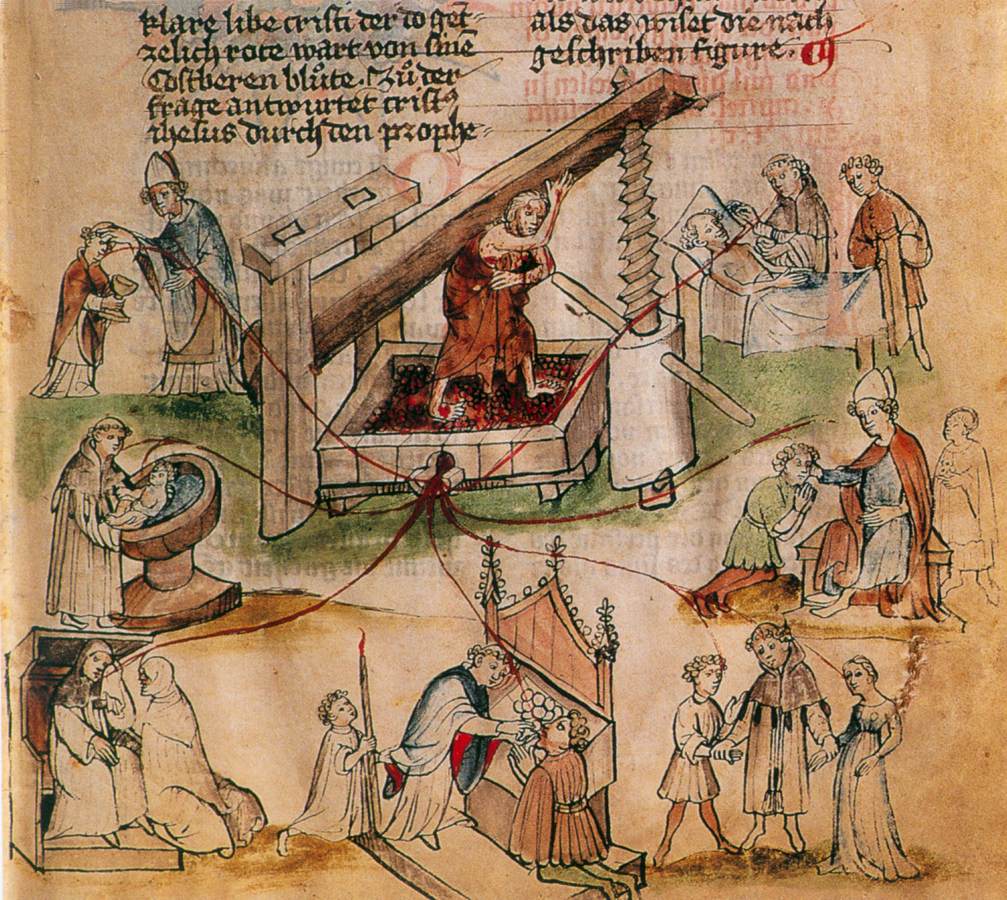 klare libe cristi der do get⸗
zelich rote wart von sinē
Costberen blůte. Zů der
frage antwurtet cristꝰ
ihesus durch den prophe⸗
als das wiset die nach
geschriben figure.